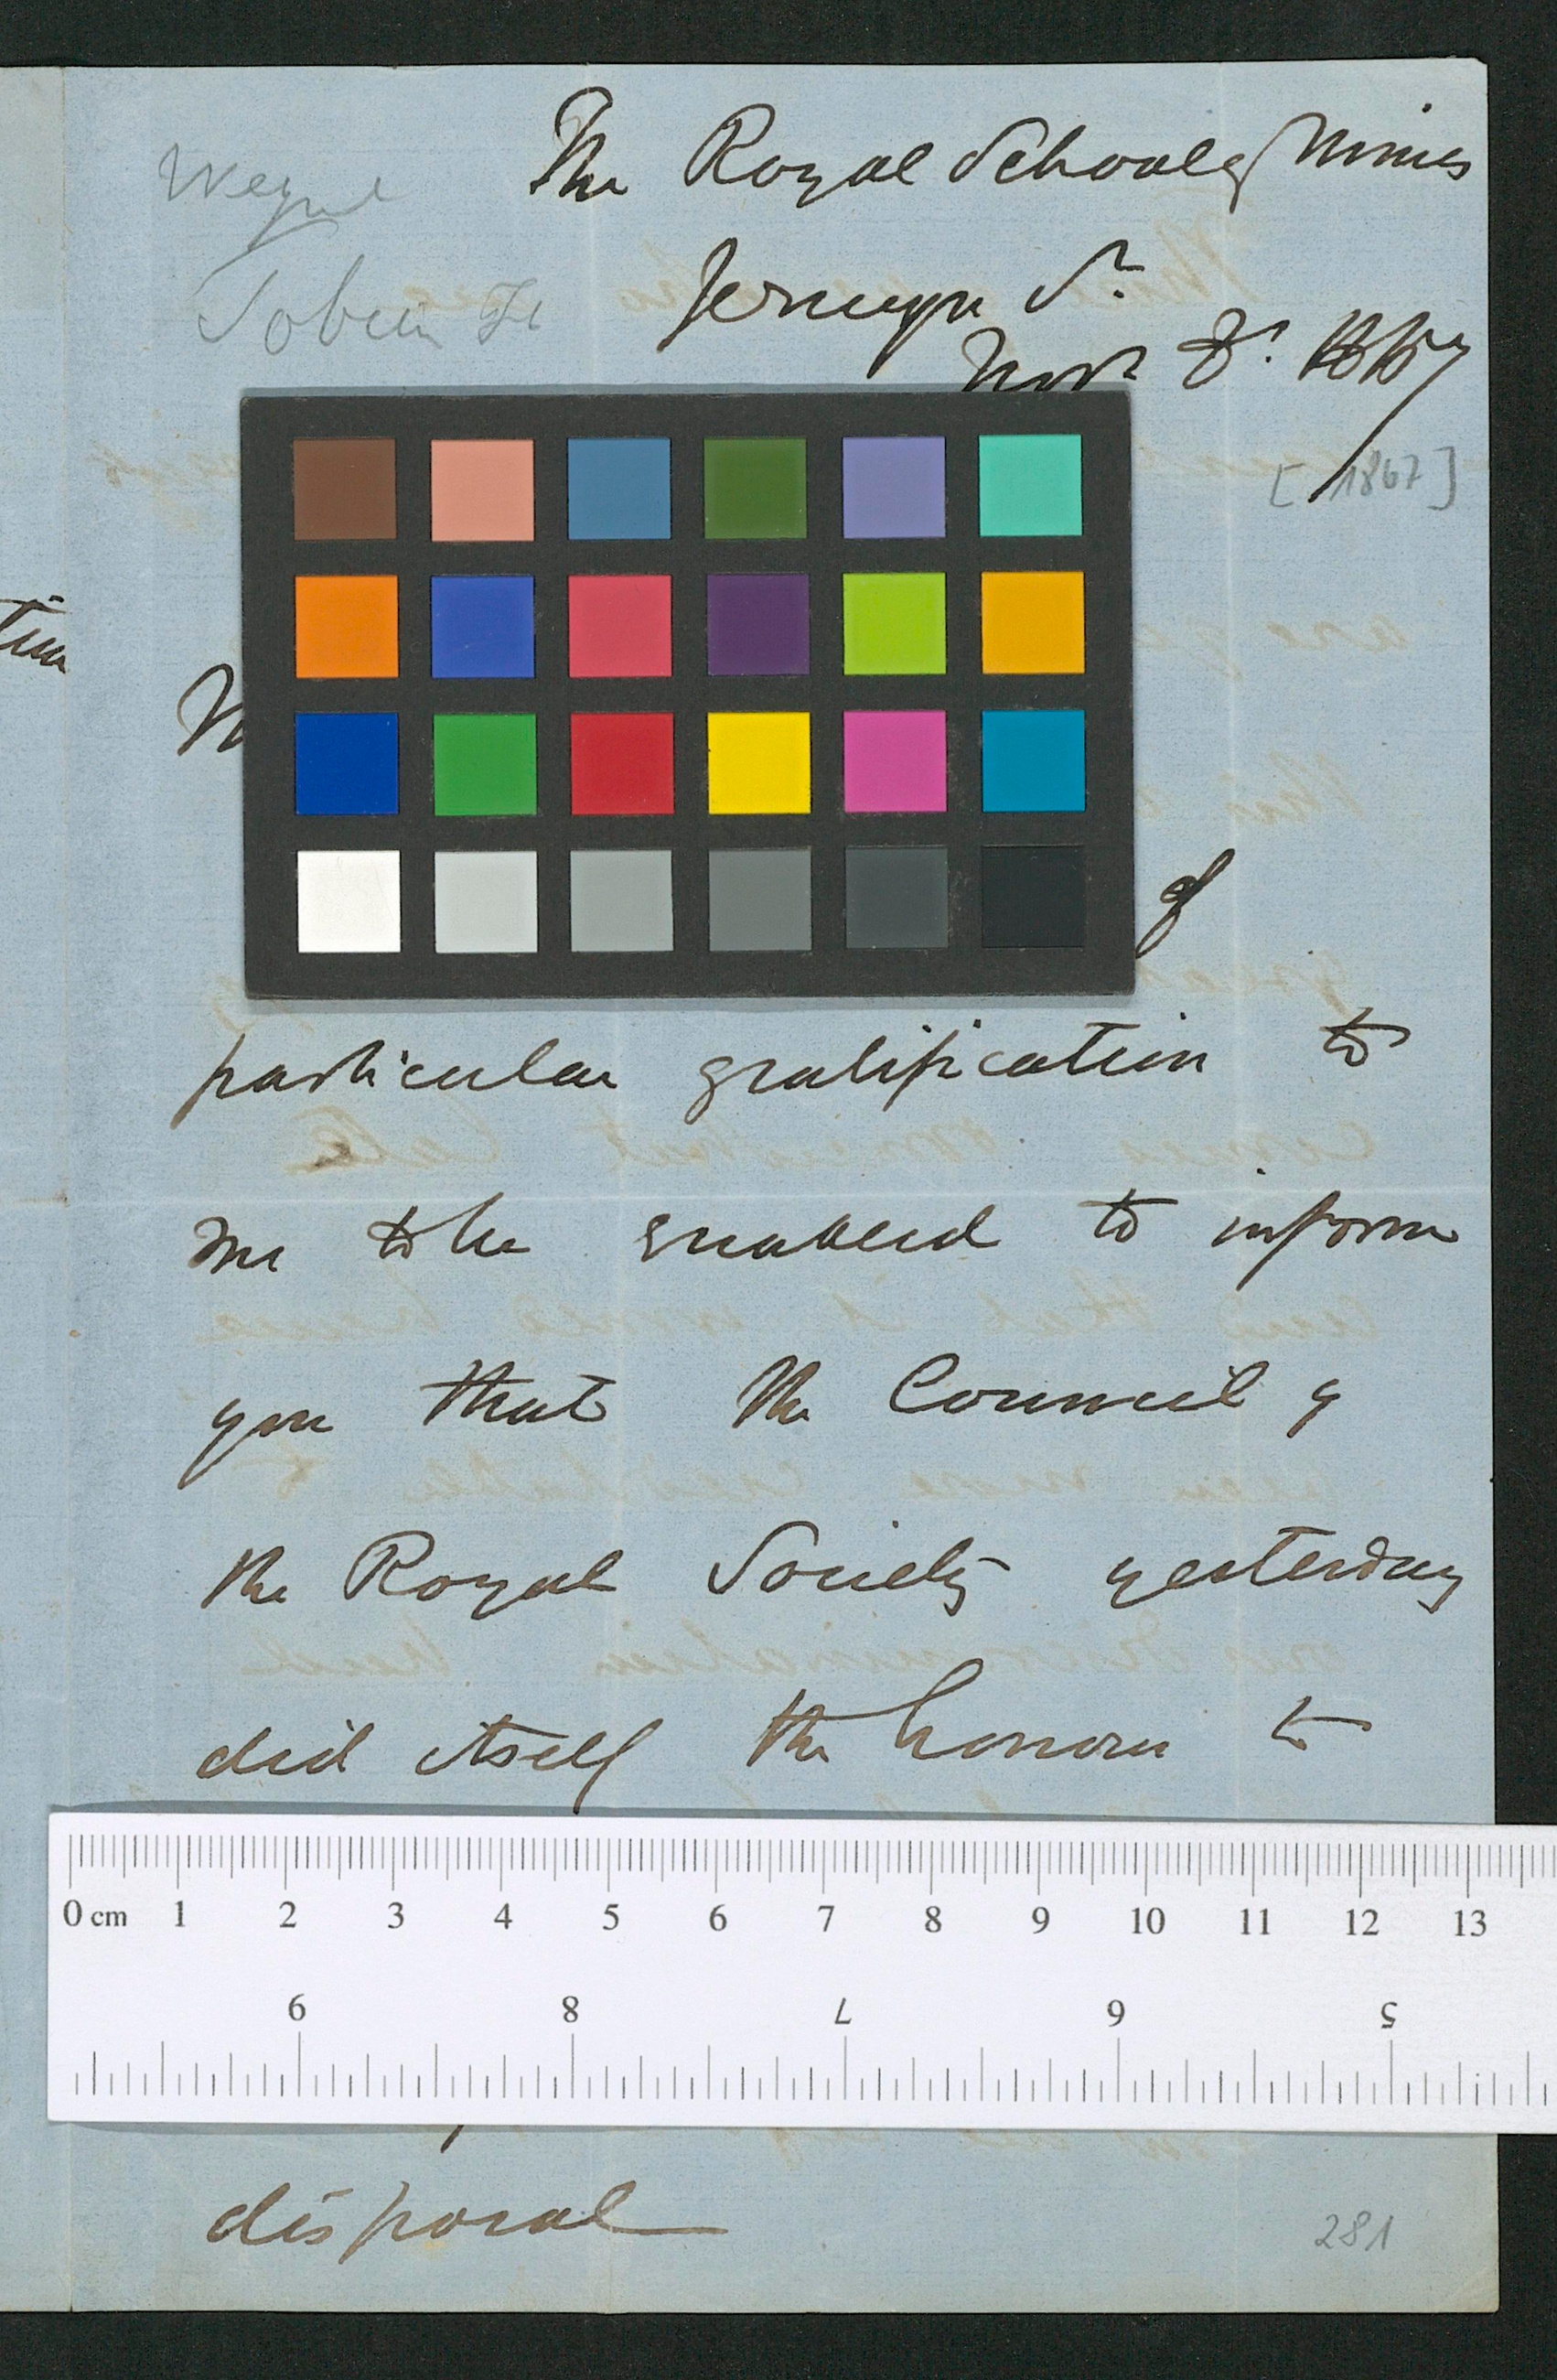 The Royal School of Mines
Jermyn St.
Novr 8. 1867
[1867]
of
particular gratification to
me to be enabled to inform
you that the Council of
the Royal Society yesterday
did itself the honour to
0 cm 1 2 3 4 5 6 7 8 9 10 11 12 13
9 8 7 6 5
disposal
281